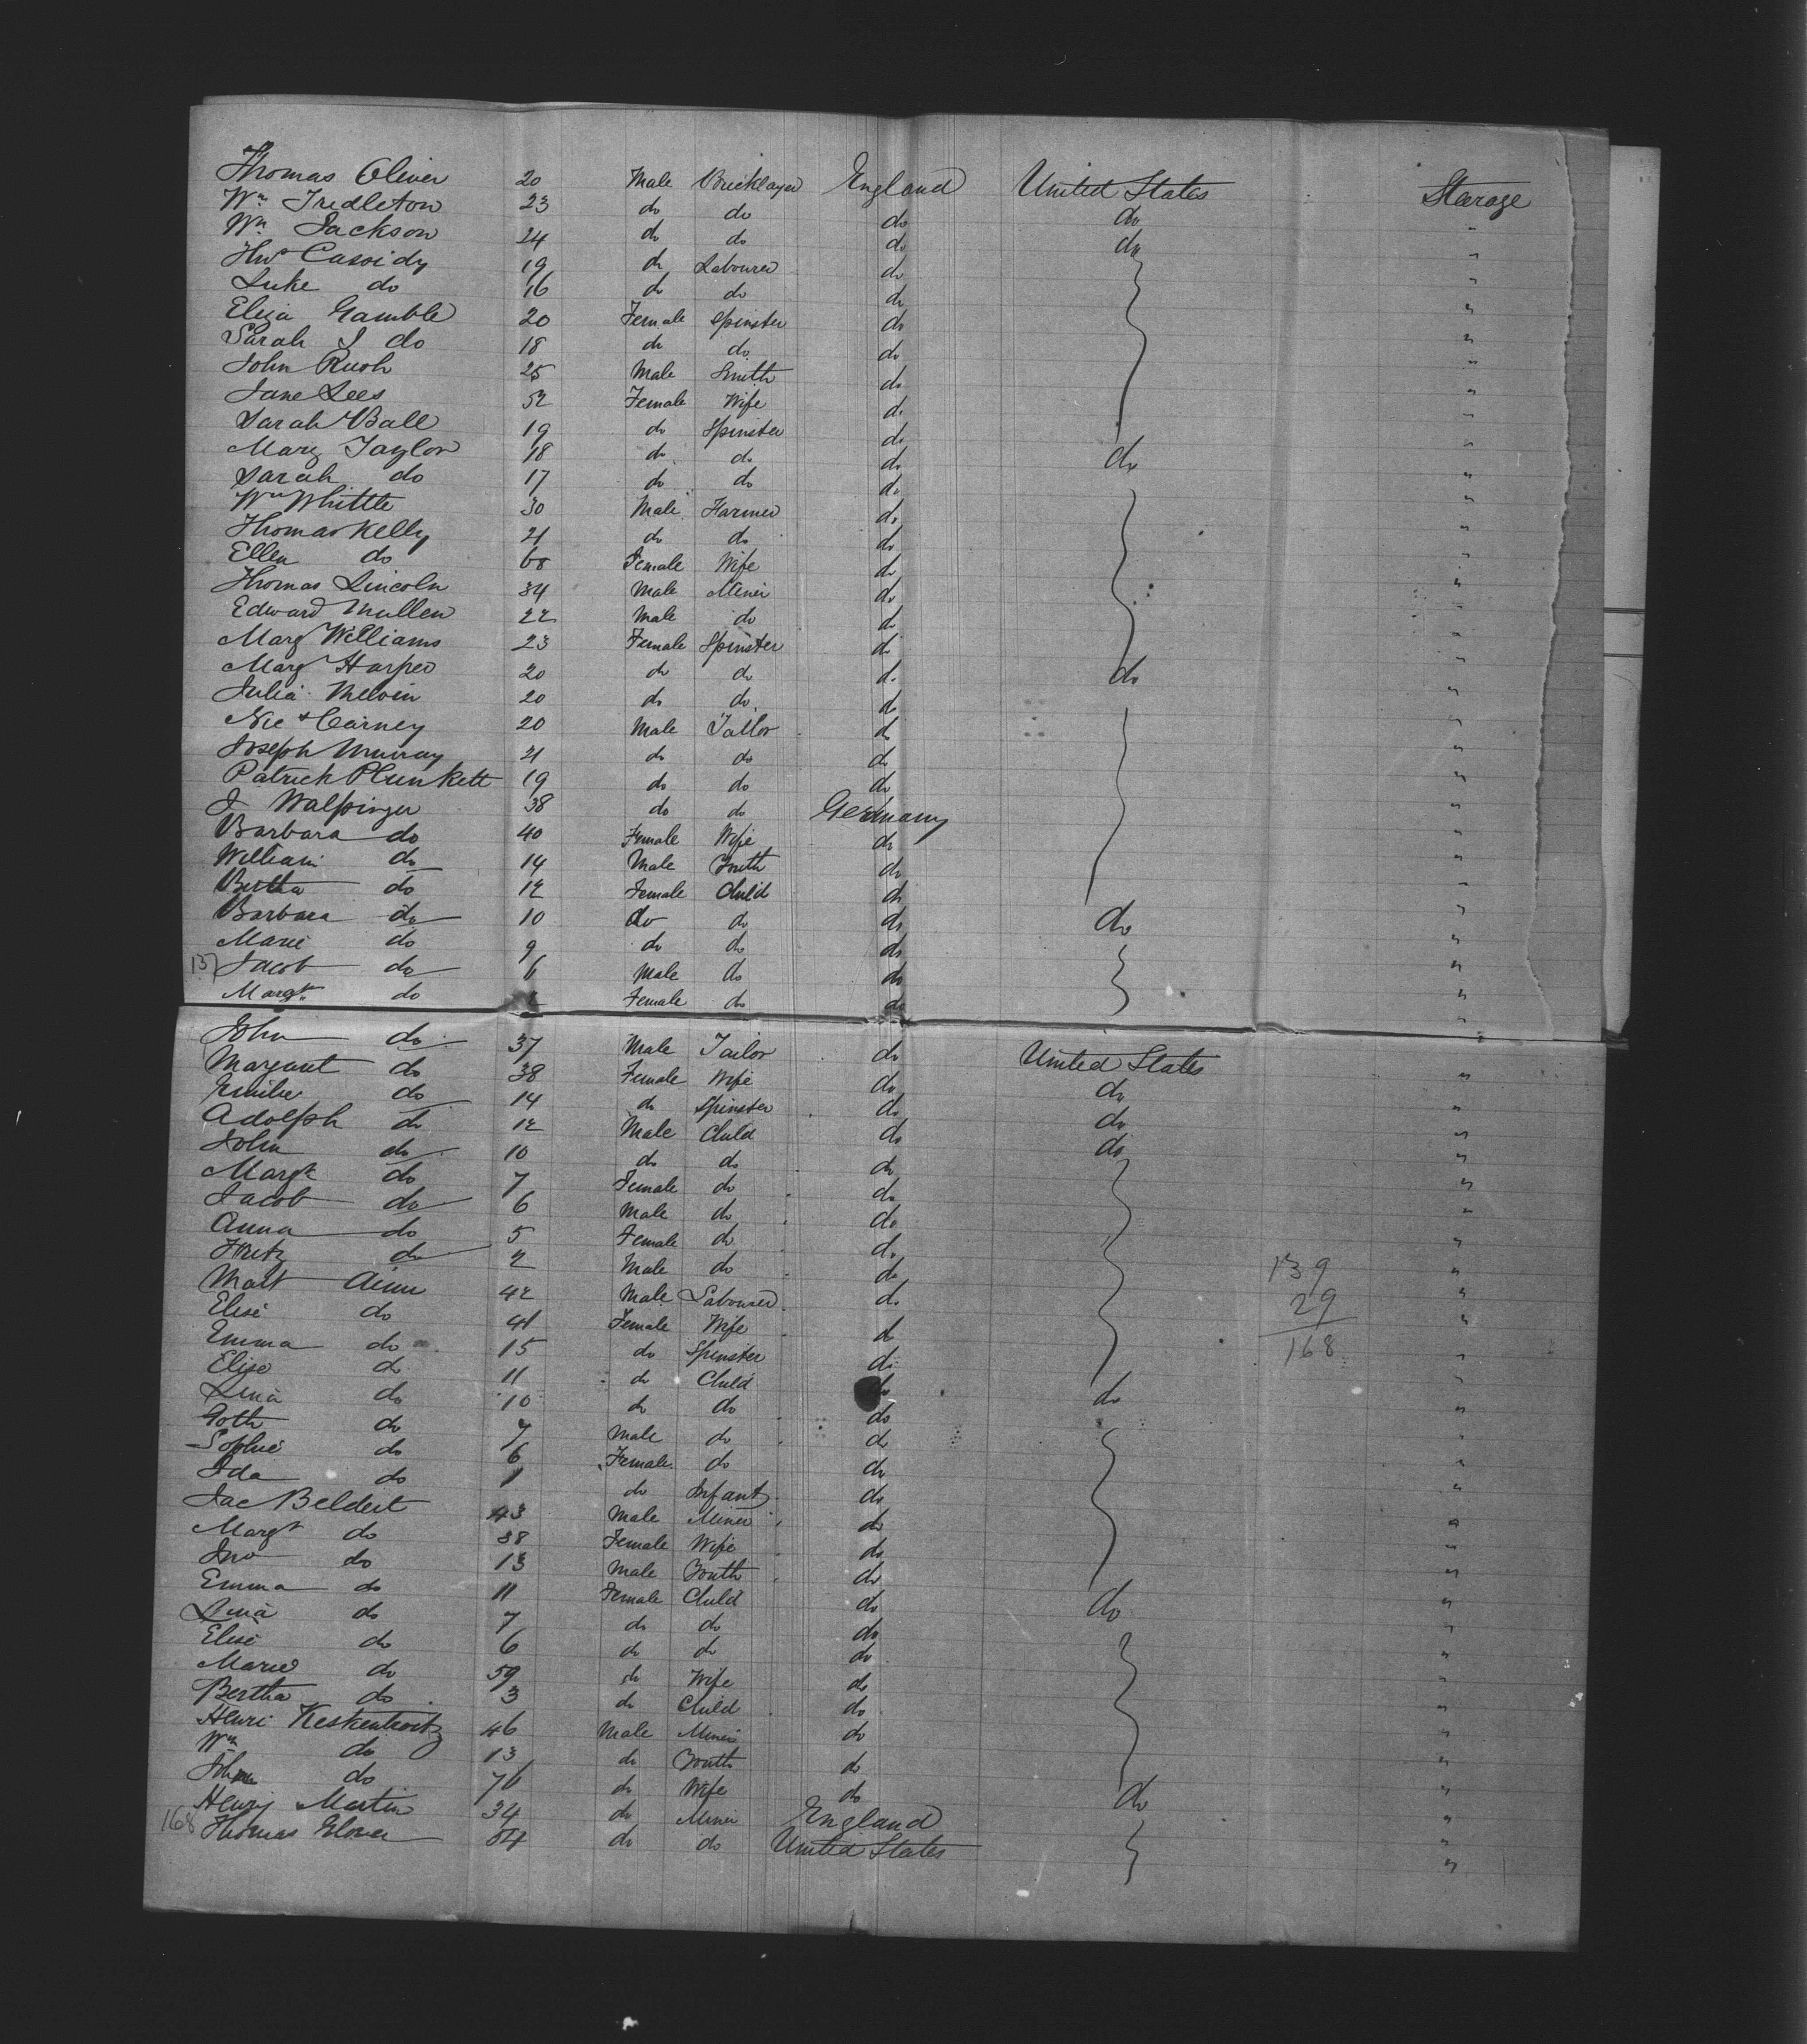 Thomas Oliver 20 Male Bricklayer England United States Steerage
Wm Tredleton 23 do do do do "
Wm Jackson 24 do do do do "
Cassidy 19 do Labourer do "
Luke do 16 do do do "
Eliza Gamble 20 Female Spinster do "
Sarah J do 18 do do do "
John Rush 25 Male Smith do "
Jane Lees 52 Female Wife do "
Sarah Ball 19 do Spinster do "
Mary Taylor 18 do do do do "
Sarah do 17 do do do "
Wm Whittle 30 Male Farmer do "
Thomas Kelly 21 do do do "
Ellen do 68 Female Wife do "
Thomas Lincoln 34 Male Miner do "
Edward Mullen 22 Male do do "
Mary Williams 23 Female Spinster do "
Mary Harper 20 do do do do "
Julia Melvin 20 do do do "
Carney 20 Male Tailor do "
Joseph Murray 21 do do do "
Patrick Plunkett 19 do do do "
J Walpinger 38 do do Germany "
Barbara do 40 Female Wife do "
William do 14 Male Youth do "
Bertha do 12 Female Child do "
Barbara do 10 do do do do "
Marie do 9 do do do "
137 Jacob do 6 Male do do "
Margt do Female do do "
John do 37 Male Tailor do United States "
Margaret do 38 Female Wife do do "
Emilie do 14 do Spinster do do "
Adolph do 12 Male Child do do "
John do 10 do do do "
Margt do 7 Female do do "
Jacob do 6 Male do do "
Anna do 5 Female do do "
Fritz do 2 Male do do 139 "
Mait Aime 42 Male Labourer do 29 "
Elise do 41 Female Wife do 168 "
Emma do 15 do Spinster do "
Elise do 11 do Child do do "
Lina do 10 do do do "
Goth do 7 Male do do "
Sophie do 6 Female do do "
Ida do 1 do Infant do "
Jac Beldert 43 Male Miner do "
Margt do 38 Female Wife do "
Jno do 13 Male Youth do "
Emma do 11 Female Child do do "
Lina do 7 do do do "
Elise do 6 do do do "
Marie do 59 do Wife do "
Bertha do 3 do Child do "
Henri Keskenkoitz 46 Male Miner do "
Wm do 13 do Youth do "
John do 76 do Wife do do "
Henry Martin 34 do Miner England "
168 Thomas Glover 54 do do United States "